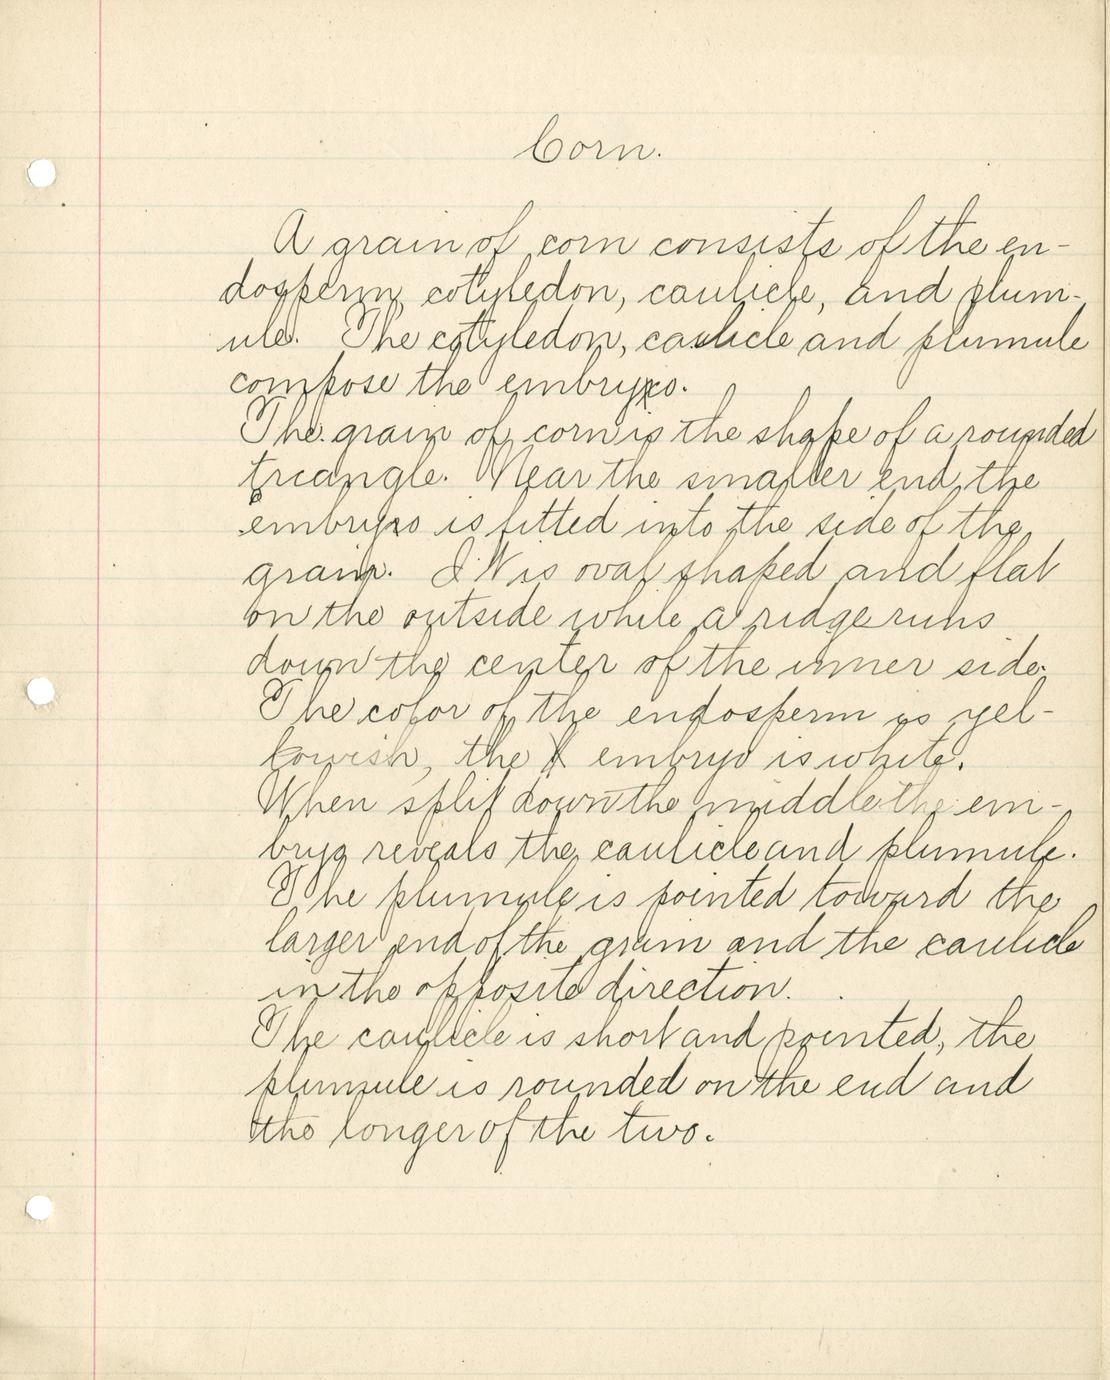 Corn.
A grain of corn consists of the en-
dosperm, cotyledon, caulicle, and plum-
ule. The cotyledon, caulicle and plumule
compose the embryo.
The grain of corn is the shape of a rounded
triangle. Near the smaller end, the
embryo is fitted into the side of the
grain. It is oval shaped and flat
on the outside while a ridge runs
down the center of the inner side.
The color of the endosperm is yel-
lowish, the embryo is white.
When split down the middle the em-
bryo reveals the caulicle and plumule.
The plumule is pointed toward the
larger end of the grain and the caulicle
in the opposite direction.
The caulicle is short and pointed, the
plumule is rounded on the end and
the longer of the two.